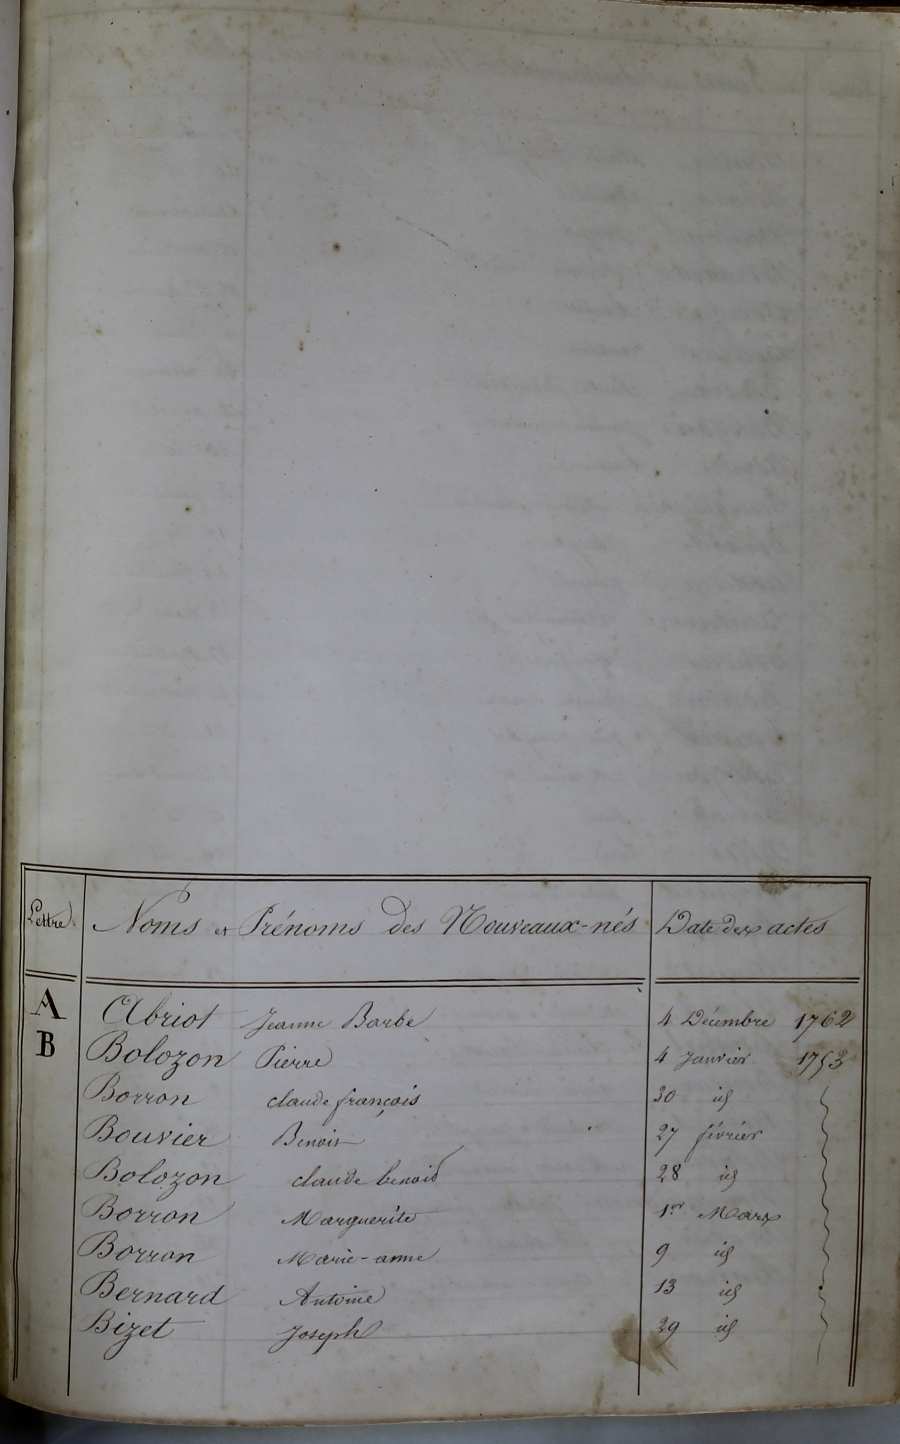 Lettre Noms et Prénoms des Nouveaux-nés Date des actes
A Abriot Jeanne Barbe 4 Décembre 1762
B Bolozon Pierre 4 Janvier 1753
Borron claude françois 30 id
Bouvier Benoit 27 février
Bolozon claude benoid 28 id
Borron Marguerite 1er Mars
Borron Marie-anne 9 id
Bernard Antoine 13 id
Bizet Joseph 29 id